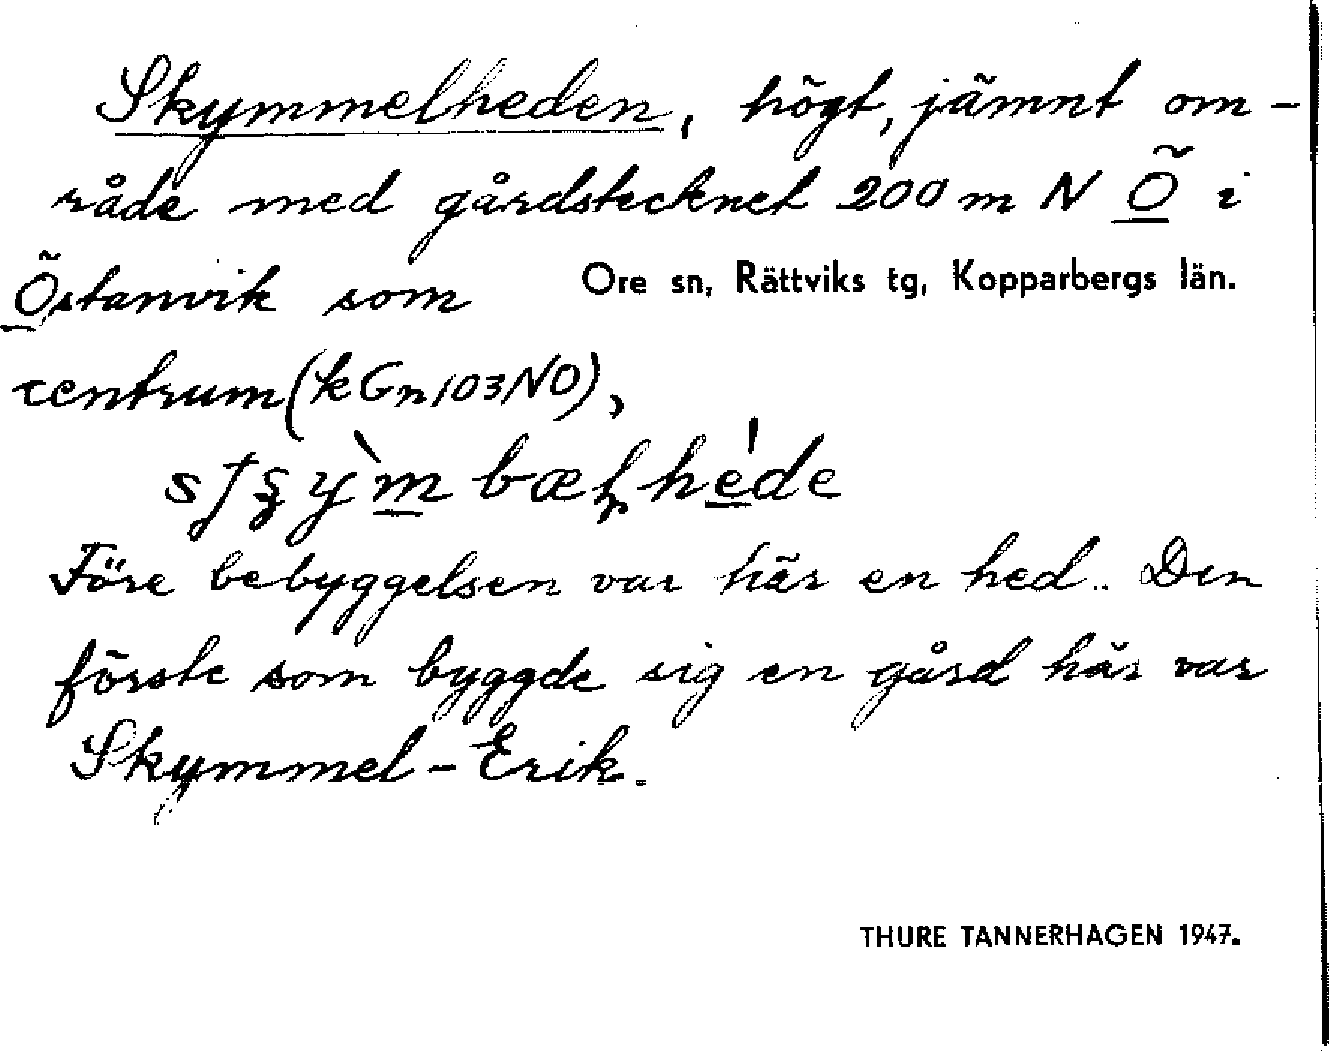 Skymmelheden, högt, jämnt om-
råde med gårdstecknet 200 m N Ö i
Östanvik som
Ore sn, Rättviks tg, Kopparbergs län.
centrum (kGn103NO),
Före bebyggelsen var här en hed. Den
förste som byggde sig en gård här var
Skymmel-Erik.
THURE TANNERHAGEN 1947.